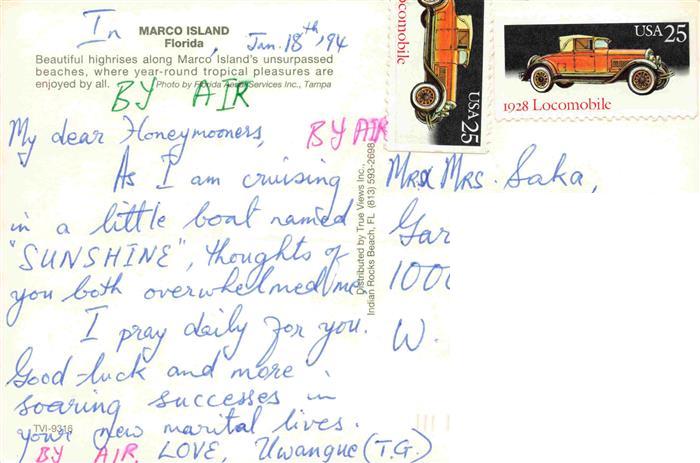 In MARCO ISLAND
Florida, Jan. 18th, '94
Beautiful highrises along Marco Island's unsurpassed
beaches, where year-round tropical pleasures are
enjoyed by all. Photo by Florida Aerial Services Inc., Tampa
BY AIR
My dear Honeymooners, BY AIR
As I am cruising
in a little boat named
"SUNSHINE", thoughts of
you both overwhelmed me.
I pray daily for you.
Good-luck and more
soaring successes in
TVI-9316
your new marital lives.
BY AIR LOVE, Uwangue (T.G.)
Distributed by True Views Inc.,
Indian Rocks Beach, FL (813) 593-2698
ocomobile
USA 25
USA 25
1928 Locomobile
Mr & Mrs. Saka,
Gar
100
W.